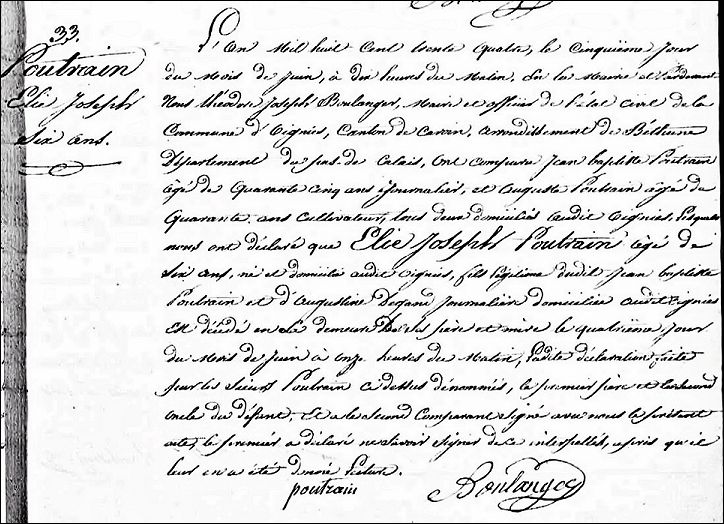 33.
Poutrain
Elie Joseph
Six ans.
L'an Mil huit Cent trente quatre, le Cinquième Jour
du Mois de Juin, à dix heures du Matin, En la Mairie et Pardevant
Nous théodore Joseph Boulanger, Maire et officier de l'état civil de la
Commune d'Oignies, Canton de Carvin, arrondissement de Béthune
Département du pas-de Calais, Ont Comparu Jean baptiste Poutrain
âgé de Quarante Cinq ans Journalier, et Auguste Poutrain âgé de
Quarante ans Cultivateur, tous deux domiciliés audit Oignies, lesquels
nous ont déclaré que Elie Joseph Poutrain âgé de
Six ans, né et domicilié audit Oignies, fils légitime dudit Jean baptiste
Poutrain et d'Augustine Degand Journalière domiciliée audit Oignies
Est décédé en la demeure de ses père et mère le quatrième Jour
du Mois de Juin à onze heures du Matin, Ladite déclaration faite
par les Sieurs Poutrain Ci dessus dénommés, le premier père et le second
oncle du défunt, Et a le Second Comparant Signé avec nous le présent
acte, le premier a déclaré ne Savoir Signer de ce interpellés, après qu'il
leur en a été donné Lecture.
poutrain
Boulanger